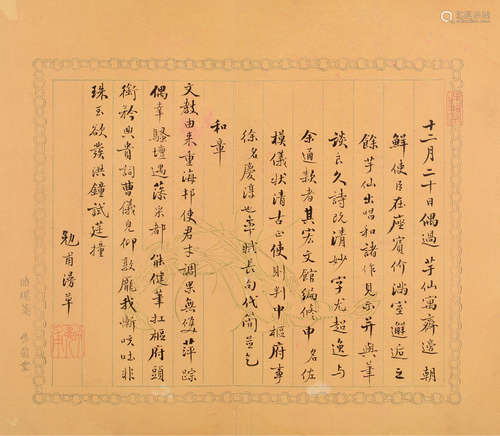 十二月二十日偶過芋仙寓齋適朝
鮮使臣在座賓价滿室邂逅之
餘芋仙出唱和諸作見示并與筆
談良久詩既清妙字尤超逸與
余通款者其宏文館編修申名佐
模儀狀清古正使則判中樞府事
徐名慶淳也率賦長句代簡並乞
和章
文教由來重海邦使君才調果無雙萍踪
偶幸騷壇遇藻采都能健筆扛樞府頭
銜矜典貴詞曹儀息仰敦龐我慚咳吐非
珠玉欲發洪鐘試莛撞
勉甫漫草